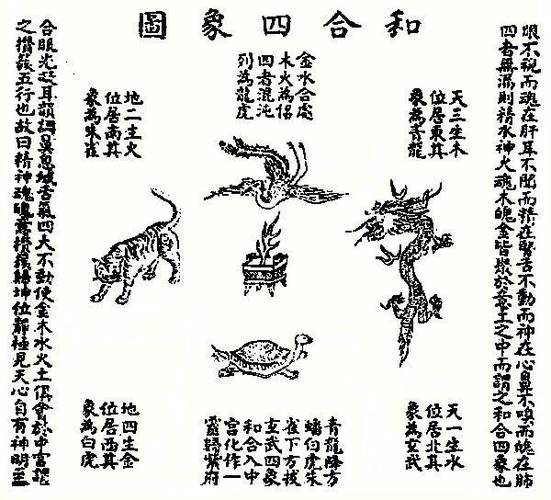 和合四象圖
眼不視而魂在肝耳不聞而精在腎舌不動而神在心鼻不嗅而魄在肺
四者無漏則精水神火魂木魄金皆聚於意土之中而謂之和合四象也
天三生木
位居東其
象為青龍
金水合處
木火為侶
四者混沌
列為龍虎
地二生火
位居南其
象為朱雀
天一生水
位居北其
象為玄武
青龍降方
蟠伯虎朱
雀下方披
玄武四象
和合入中
宮化作一
靈歸紫府
地四生金
位居西其
象為白虎
合眼光凝耳韻調鼻息緘舌氣四大不動使金木水火土俱會於中宮謂
之攢簇五行也故曰精神魂魄意攢簇歸坤位靜極見天心自有神明至